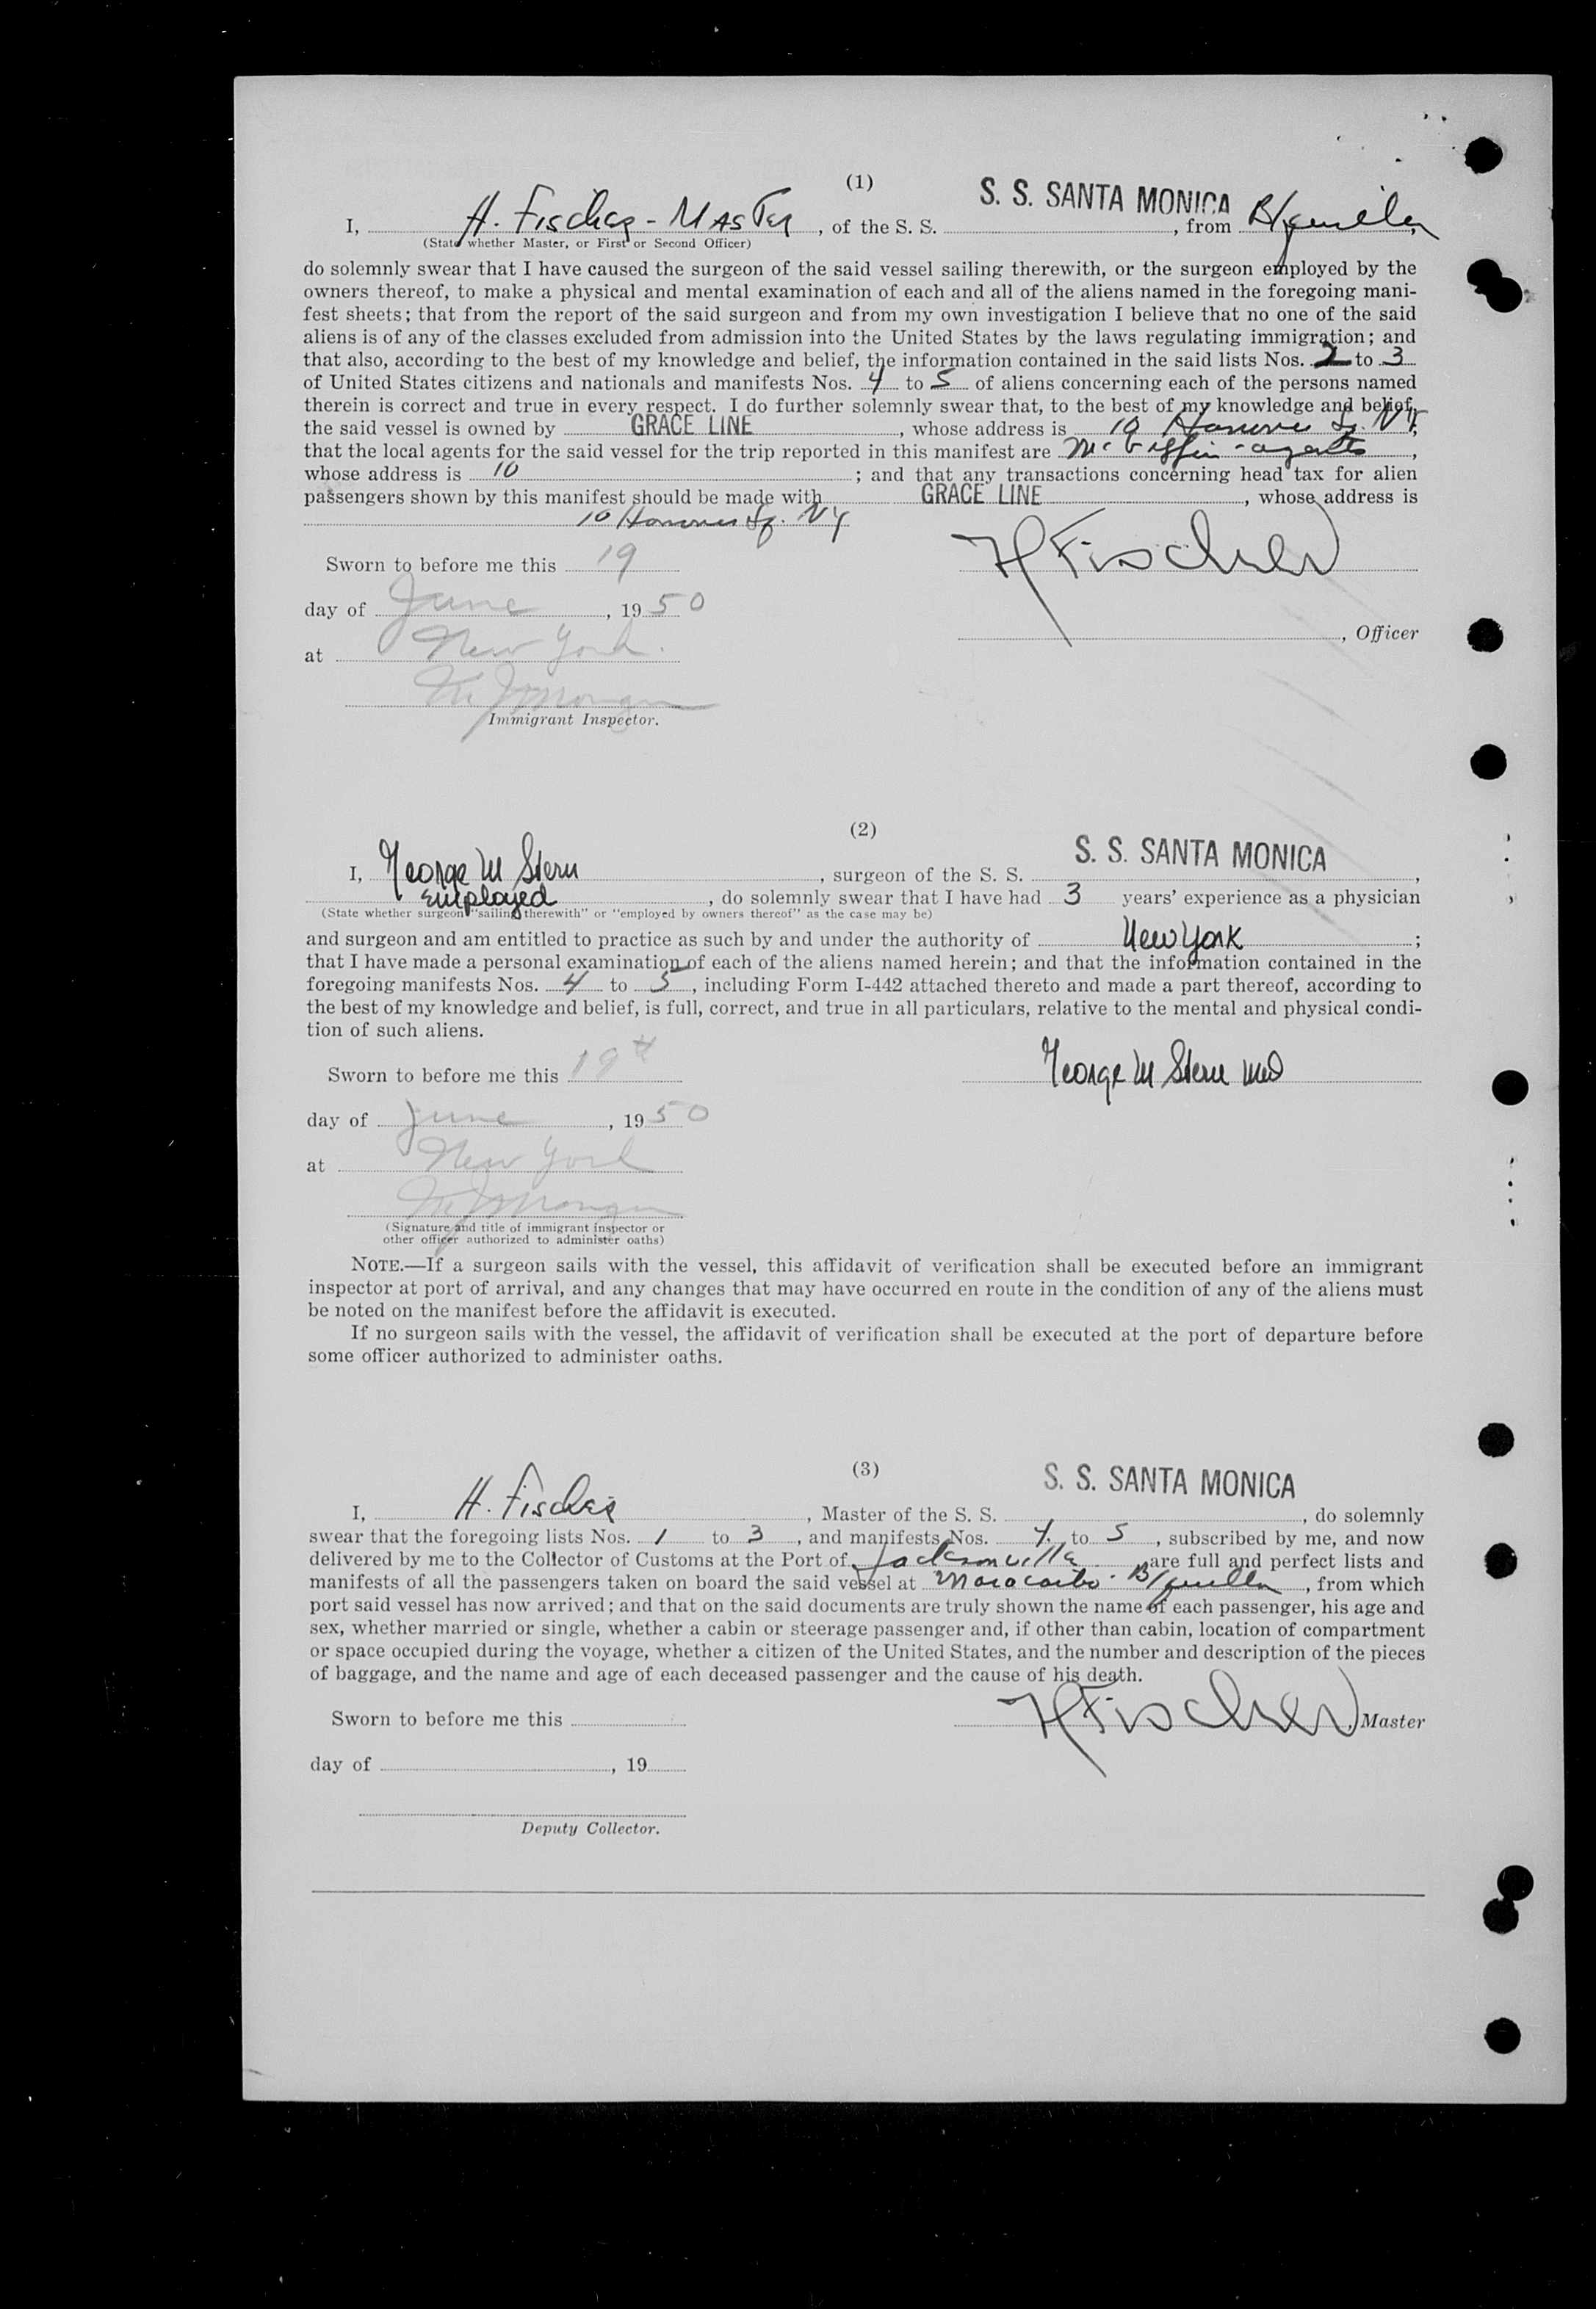 (1)
I, H. Fischer - Master, of the S. S. S. S. SANTA MONICA, from B/quilla,
(State whether Master, or First or Second Officer)
do solemnly swear that I have caused the surgeon of the said vessel sailing therewith, or the surgeon employed by the
owners thereof, to make a physical and mental examination of each and all of the aliens named in the foregoing mani-
fest sheets; that from the report of the said surgeon and from my own investigation I believe that no one of the said
aliens is of any of the classes excluded from admission into the United States by the laws regulating immigration; and
that also, according to the best of my knowledge and belief, the information contained in the said lists Nos. 2 to 3
of United States citizens and nationals and manifests Nos. 4 to 5 of aliens concerning each of the persons named
therein is correct and true in every respect. I do further solemnly swear that, to the best of my knowledge and belief,
the said vessel is owned by GRACE LINE, whose address is 10 Hanover Sq. NY,
that the local agents for the said vessel for the trip reported in this manifest are McGiffin - agents,
whose address is 10; and that any transactions concerning head tax for alien
passengers shown by this manifest should be made with GRACE LINE, whose address is
10 Hanover Sq. NY
Sworn to before me this 19
H Fischer
day of June, 1950
, Officer
at New York.
Immigrant Inspector.
(2)
I, George M Stern, surgeon of the S. S. S. S. SANTA MONICA,
Employed, do solemnly swear that I have had 3 years' experience as a physician
(State whether surgeon "sailing therewith" or "employed by owners thereof" as the case may be)
and surgeon and am entitled to practice as such by and under the authority of New York;
that I have made a personal examination of each of the aliens named herein; and that the information contained in the
foregoing manifests Nos. 4 to 5, including Form I-442 attached thereto and made a part thereof, according to
the best of my knowledge and belief, is full, correct, and true in all particulars, relative to the mental and physical condi-
tion of such aliens.
Sworn to before me this 19th
George M Stern MD
day of June, 1950
at New York
(Signature and title of immigrant inspector or
other officer authorized to administer oaths)
NOTE.—If a surgeon sails with the vessel, this affidavit of verification shall be executed before an immigrant
inspector at port of arrival, and any changes that may have occurred en route in the condition of any of the aliens must
be noted on the manifest before the affidavit is executed.
If no surgeon sails with the vessel, the affidavit of verification shall be executed at the port of departure before
some officer authorized to administer oaths.
(3)
I, H. Fischer, Master of the S. S. S. S. SANTA MONICA, do solemnly
swear that the foregoing lists Nos. 1 to 3, and manifests Nos. 4 to 5, subscribed by me, and now
delivered by me to the Collector of Customs at the Port of Jacksonville are full and perfect lists and
manifests of all the passengers taken on board the said vessel at Maracaibo - B/quilla, from which
port said vessel has now arrived; and that on the said documents are truly shown the name of each passenger, his age and
sex, whether married or single, whether a cabin or steerage passenger and, if other than cabin, location of compartment
or space occupied during the voyage, whether a citizen of the United States, and the number and description of the pieces
of baggage, and the name and age of each deceased passenger and the cause of his death.
Sworn to before me this
H Fischer, Master
day of , 19
Deputy Collector.